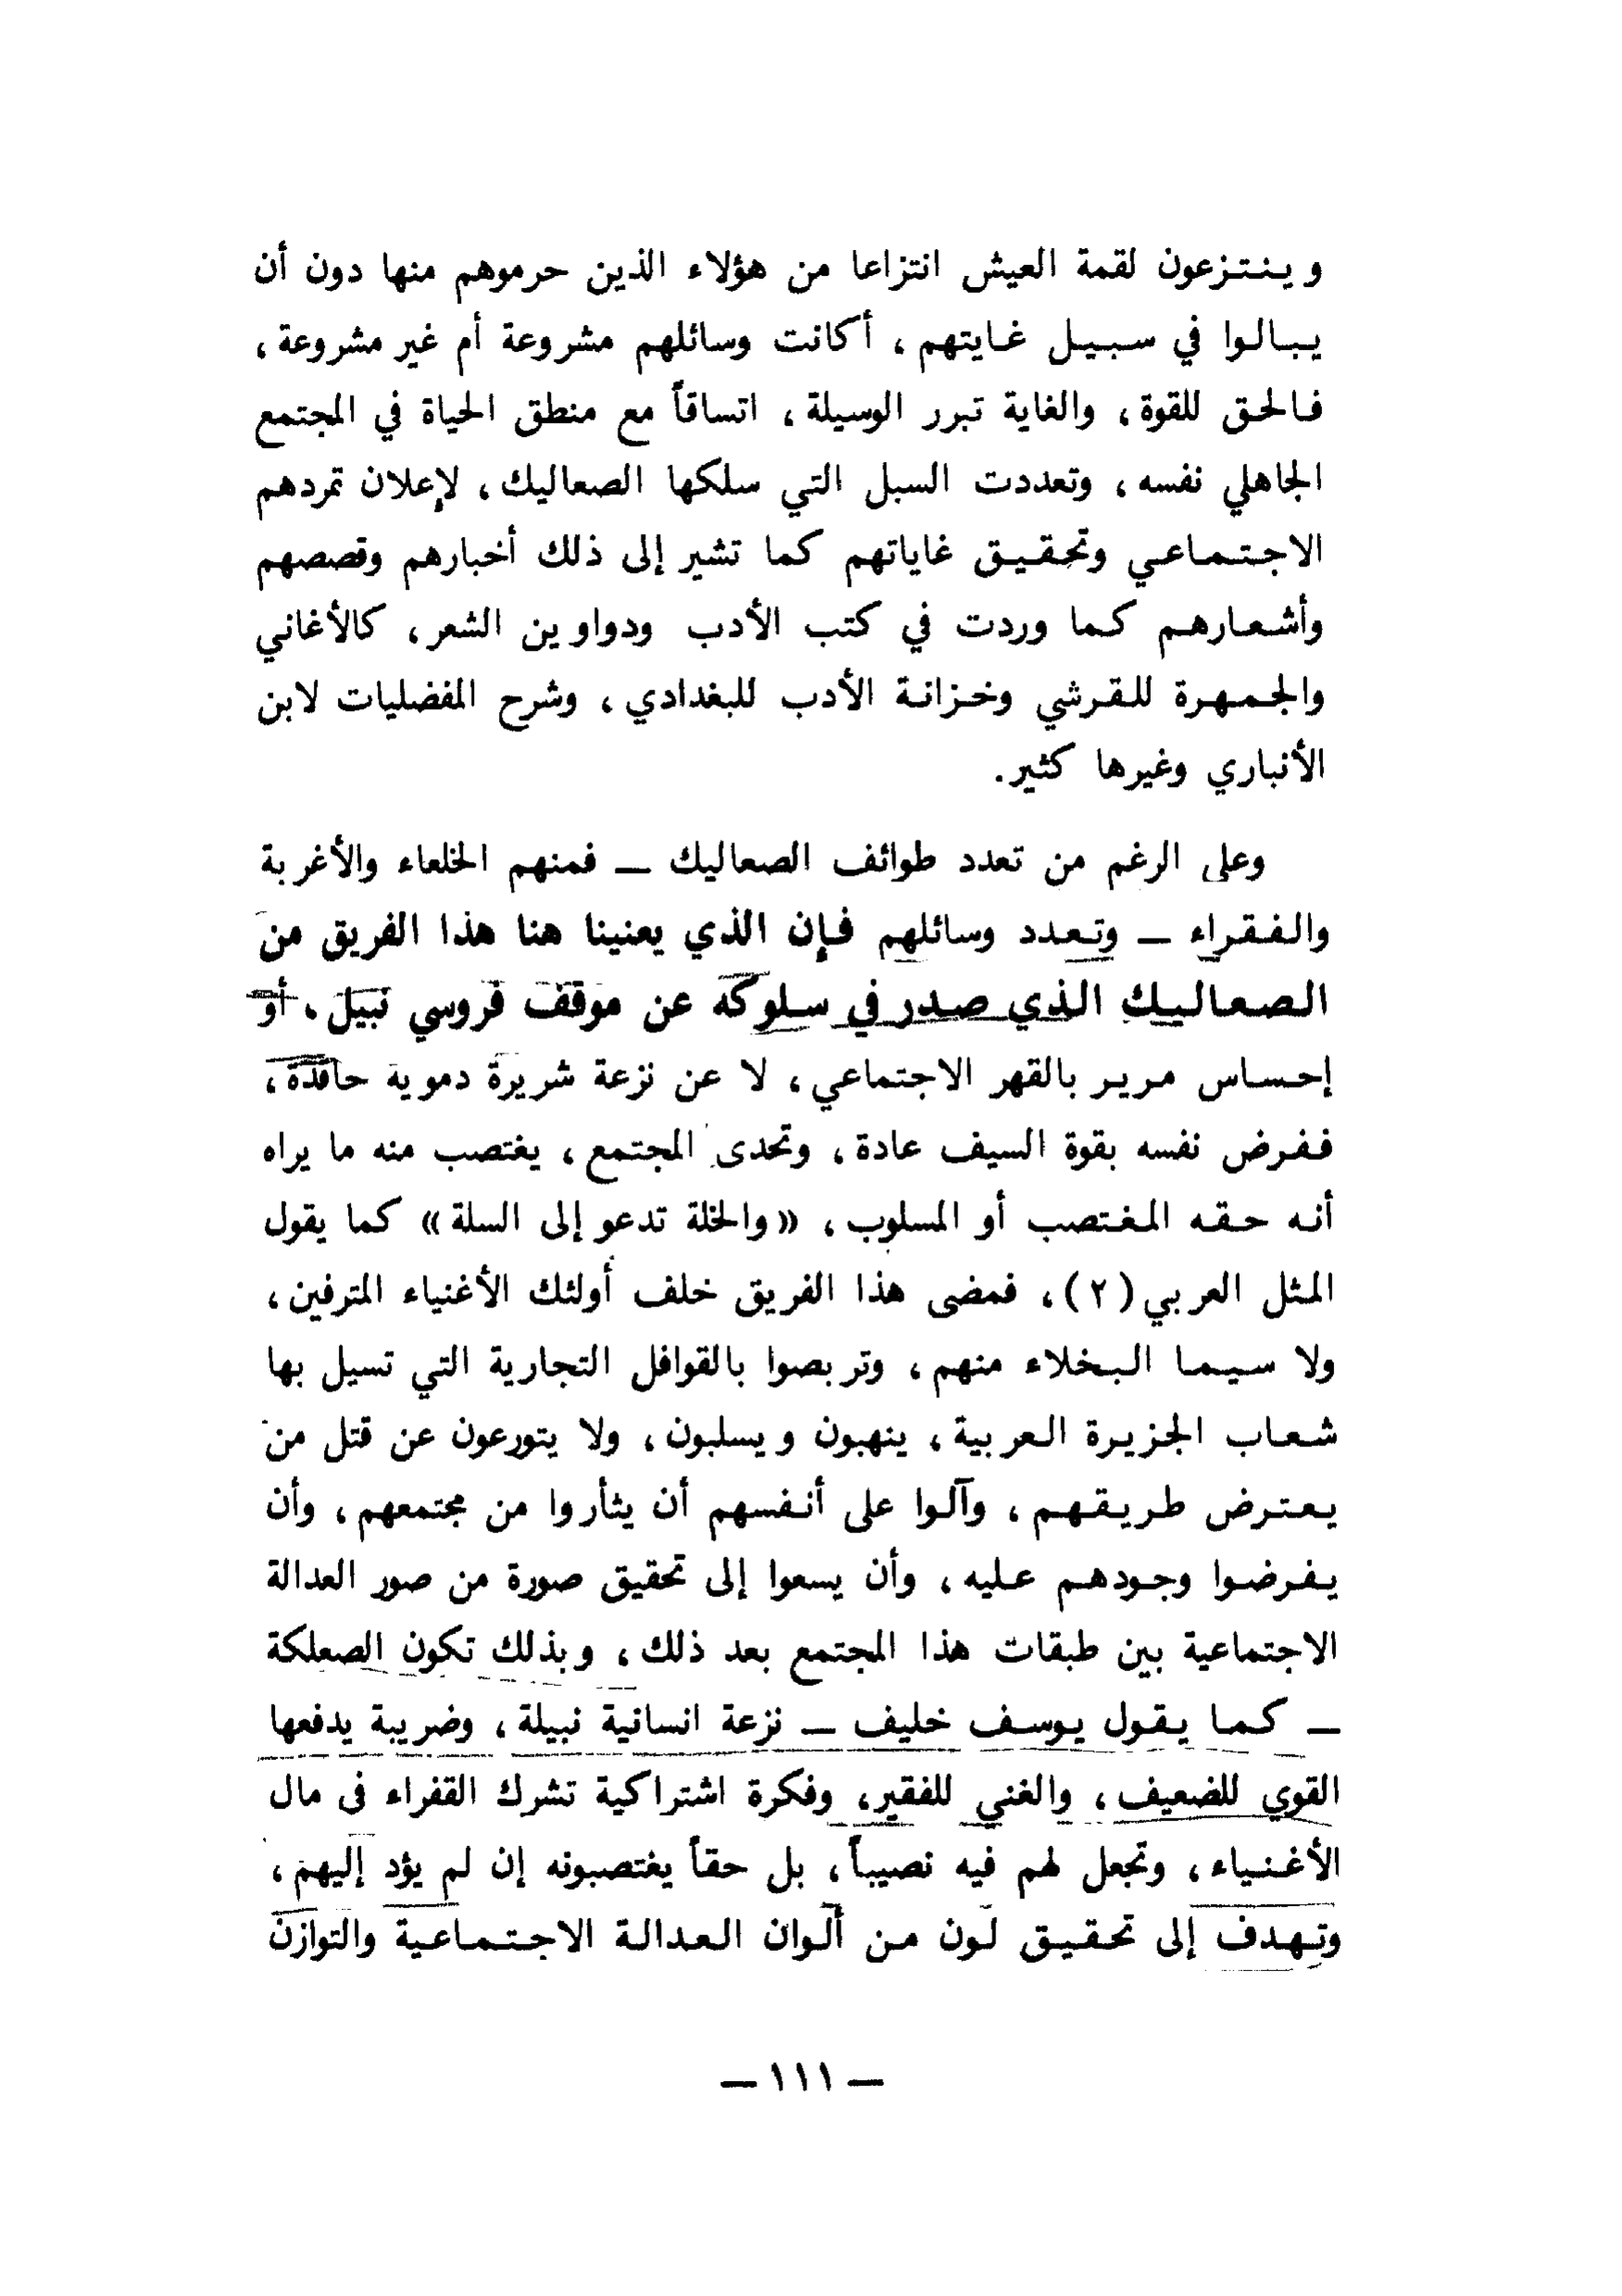 وينتزعون لقمة العيش انتزاعا من هؤلاء الذين حرموهم منها دون أن
يبالوا في سبيل غايتهم، أكانت وسائلهم مشروعة أم غير مشروعة،
فالحق للقوة، والغاية تبرر الوسيلة، اتساقاً مع منطق الحياة في المجتمع
الجاهلي نفسه، وتعددت السبل التي سلكها الصعاليك، لإعلان تمردهم
الاجتماعي وتحقيق غاياتهم كما تشير إلى ذلك أخبارهم وقصصهم
وأشعارهم كما وردت في كتب الأدب ودواوين الشعر، كالأغاني
والجمهرة للقرشي وخزانة الأدب للبغدادي، وشرح المفضليات لابن
الأنباري وغيرها كثير.
وعلى الرغم من تعدد طوائف الصعاليك — فمنهم الخلعاء والأغربة
والفقراء — وتعدد وسائلهم فإن الذي يعنينا هنا هذا الفريق من
الصعاليك الذي صدر في سلوكه عن موقف فروسي نبيل، أو
إحساس مرير بالقهر الاجتماعي، لا عن نزعة شريرة دموية حاقدة،
ففرض نفسه بقوة السيف عادة، وتحدى المجتمع، يغتصب منه ما يراه
أنه حقه المغتصب أو المسلوب، «والخلة تدعو إلى السلة» كما يقول
المثل العربي(٢)، فمضى هذا الفريق خلف أولئك الأغنياء المترفين،
ولا سيما البخلاء منهم، وتربصوا بالقوافل التجارية التي تسيل بها
شعاب الجزيرة العربية، ينهبون ويسلبون، ولا يتورعون عن قتل من
يعترض طريقهم، وآلوا على أنفسهم أن يثأروا من مجتمعهم، وأن
يفرضوا وجودهم عليه، وأن يسعوا إلى تحقيق صورة من صور العدالة
الاجتماعية بين طبقات هذا المجتمع بعد ذلك، وبذلك تكون الصعلكة
— كما يقول يوسف خليف — نزعة انسانية نبيلة، وضريبة يدفعها
القوي للضعيف، والغني للفقير، وفكرة اشتراكية تشرك القفراء فى مال
الأغنياء، وتجعل لهم فيه نصيباً، بل حقاً يغتصبونه إن لم يؤد إليهم،
وتهدف إلى تحقيق لون من ألوان العدالة الاجتماعية والتوازن
— ١١١ —